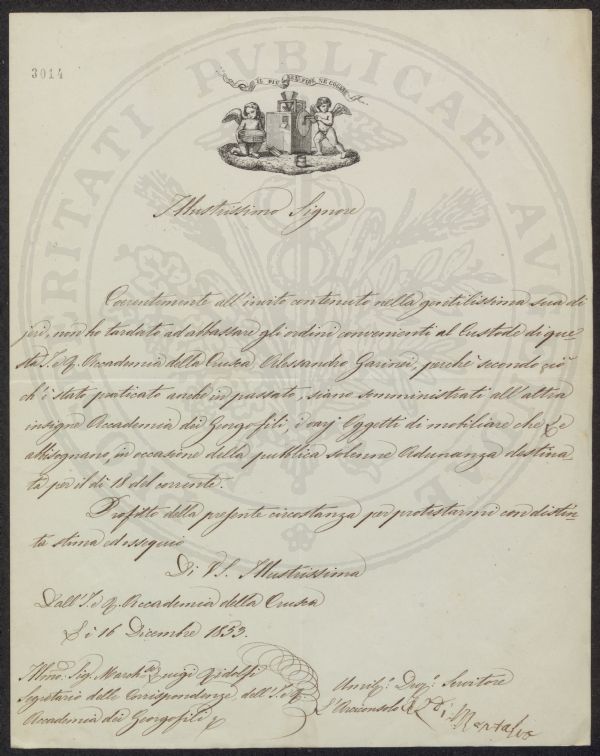 3014
IL PIÙ BEL FIOR NE COGLIE
PROSPERITATI PUBLICAE AUGENDAE
Illustrissimo Signore
Coerentemente all'invito contenuto nella gentilissima sua di
jeri, non ho tardato ad abbassare gli ordini convenienti al Custode di que-
sta I. e R. Accademia della Crusca Alessandro perchè secondo ciò
ch'è stato praticato anche in passato, siano somministrati all'altra
insigne Accademia dei Georgofili, i varj Oggetti di mobiliare che Le
abbisognano, in occasione della pubblica solenne Adunanza destina-
ta per il dì 18 del corrente.
Profitto della presente circostanza per protestarmi con distin-
ta stima ed ossequio
Di V S. Illustrissima
Dall'I. e R. Accademia della Crusca
Li 16 Dicembre 1853.
Illmo. Sig. March.se Luigi Ridolfi
Segretario delle Corrispondenze dell'I. e R.
Accademia dei Georgofili
Umil.o Dev.o Servitore
L'Arciconsolo